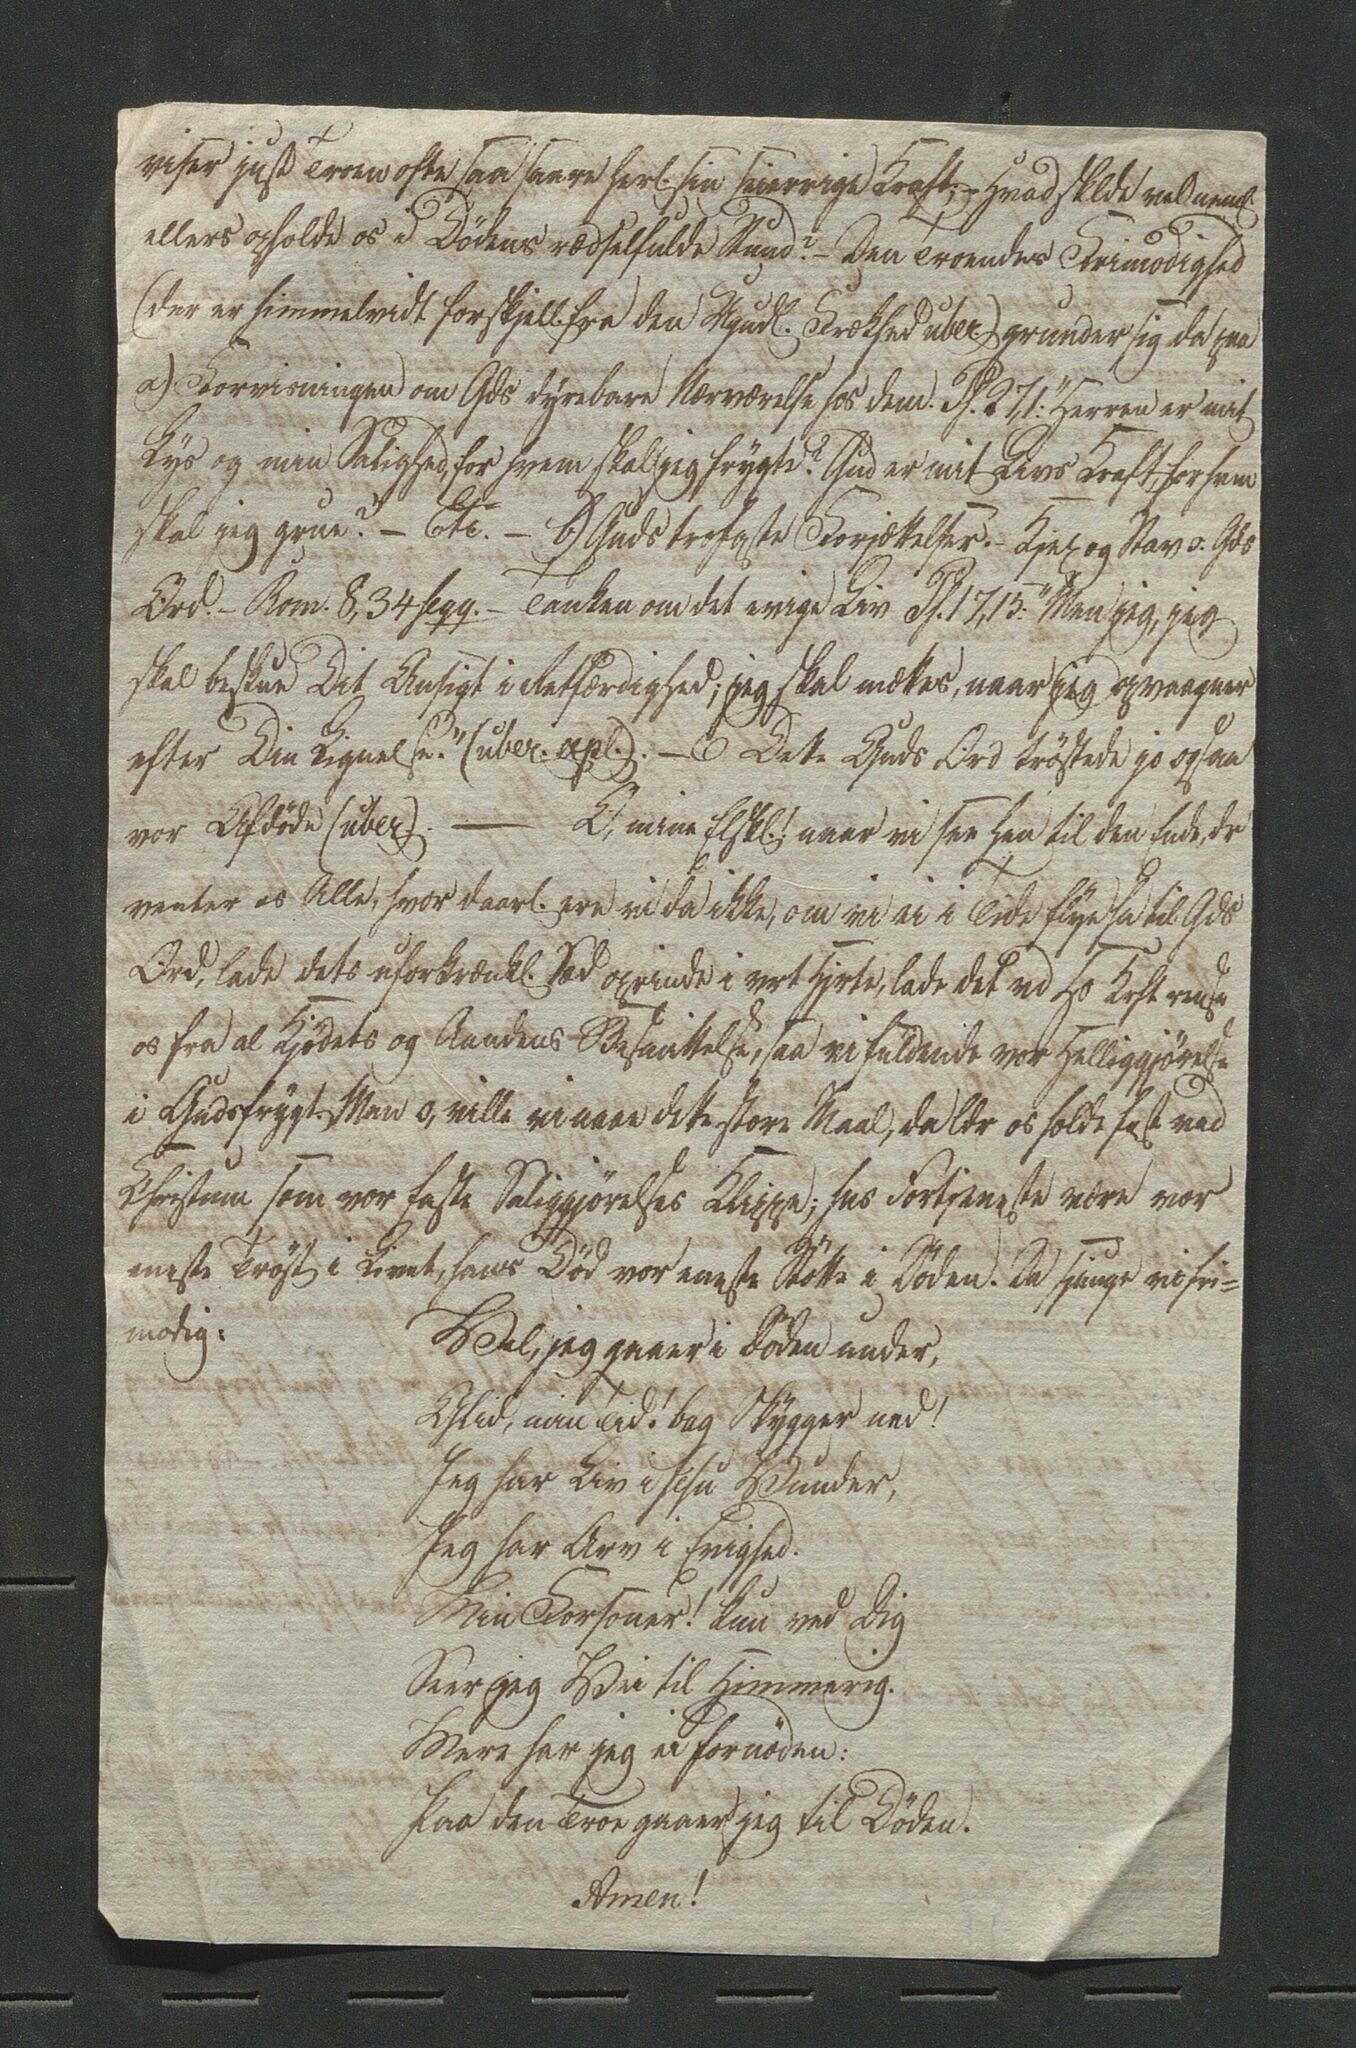 viser just Troen ofte saa saare herl. sin seierrige Kraft; – Hvad skulde vel neml.
ellers opholde os i Dødens rædselfulde Stund? – Den Troendes Frimodighed
(der er himmelvidt forskjell. fra den Ugudl. Frækhed uber.) grunder sig da paa
a) Forvisningen om Gds dyrebare Nærværelse hos dem. Ps. 27,1: "Herren er mit
Lys og min Salighed, for hvem skal jeg frygte? Gud er mit Livs Kraft, for hvem
skal jeg grue? – Etc. – b) Guds trofaste Forjættelser. – Kjep og Stav ɔ: Gds
Ord. – Rom. 8,34 seqq. – Tanken om det evige Liv Ps. 17,15: "Men jeg, jeg
skal beskue Dit Ansigt i Retfærdighed; jeg skal mættes, naar jeg opvaagner
efter Din Lignelse." (uber. apl.). – Dette Guds Ord trøstede jo ogsaa
vor Afdøde (uber). — O, mine Elskl.! naar vi see hen til den Ende, dr
venter os Alle, hvor daarl. ere vi da ikke, om vi ei i Tide flye hn til Gds
Ord, lade dets uforkrænkl. Sæd oprinde i vrt Hjrte, lade det vd Hs Krft rense
os fra al Kjødets og Aandens Besmittelse, saa vi fuldende vor Helliggjørelse
i Gudsfrygt. Men o, ville vi naae dette store Maal, da ldr os holde fast ved
Christum som vor faste Saliggjørelses Klippe; hns Fortjeneste være vor
eneste Trøst i Livet, hans Død vor eneste Støtte i Døden. Da sjunge vi fri-
modig:
Wel, jeg gaaer i Døden under,
Glid, min Tid! bag Skygger ned!
Jeg har Liv i Jesu Wunder,
Jeg har Arv i Evighed.
Min Forsoner! kun ved Dig
Seer jeg Wei til Himmerig.
Mere har jeg ei fornøden:
Paa den Troe gaaer jeg til Døden.
Amen!